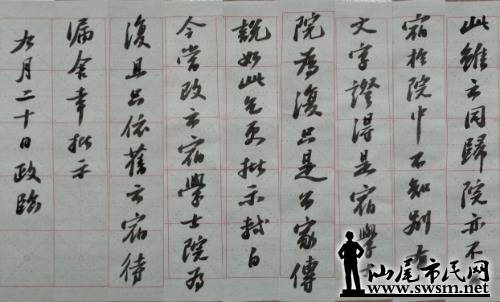 此雖云因歸院亦不
宿於院中不知別有
文字證得是宿學
院為復只是公家傳
說如此乞更批示軾白
今當改云宿學士院為
復且只依舊云宿待
漏舍幸批示
九月二十日政臨
汕尾市民网
www.swsm.net